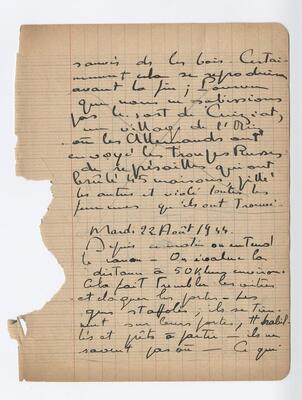 sauvés ds les bois. Certai-
nement cela se reproduira
avant la fin ; Pourvu
que nous ne subissions
pas le sort de Cuiziat,
un village de l'Ain
où les Allemands ont
envoyé les Troupes Russes
de représailles qui ont
brûlé 45 maisons, pillé
les autres et violé toutes les
femmes qu'ils ont trouvé.
Mardi 22 Août 1944.
Depuis ce matin on entend
le canon – On évalue la
distance à 50 Kms environ.
Cela fait trembler les vitres
et claquer les portes. Les
gens s'affolent, ils se tien-
nent sur leurs portes, habil-
lés et prêts à partir – ils ne
savent pas où – Ce qui